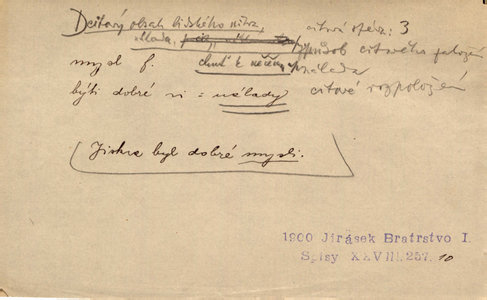 Dějový obsah lidského nitra,
citová
nálada,
způsob citového založení
mysl f. chuť k něčemu nálada
býti dobré = nálady citové rozpoložení
Jiskra byl dobré mysli.
1900 Jirásek Bratrstvo I.
Spisy XXVIII.257. 10